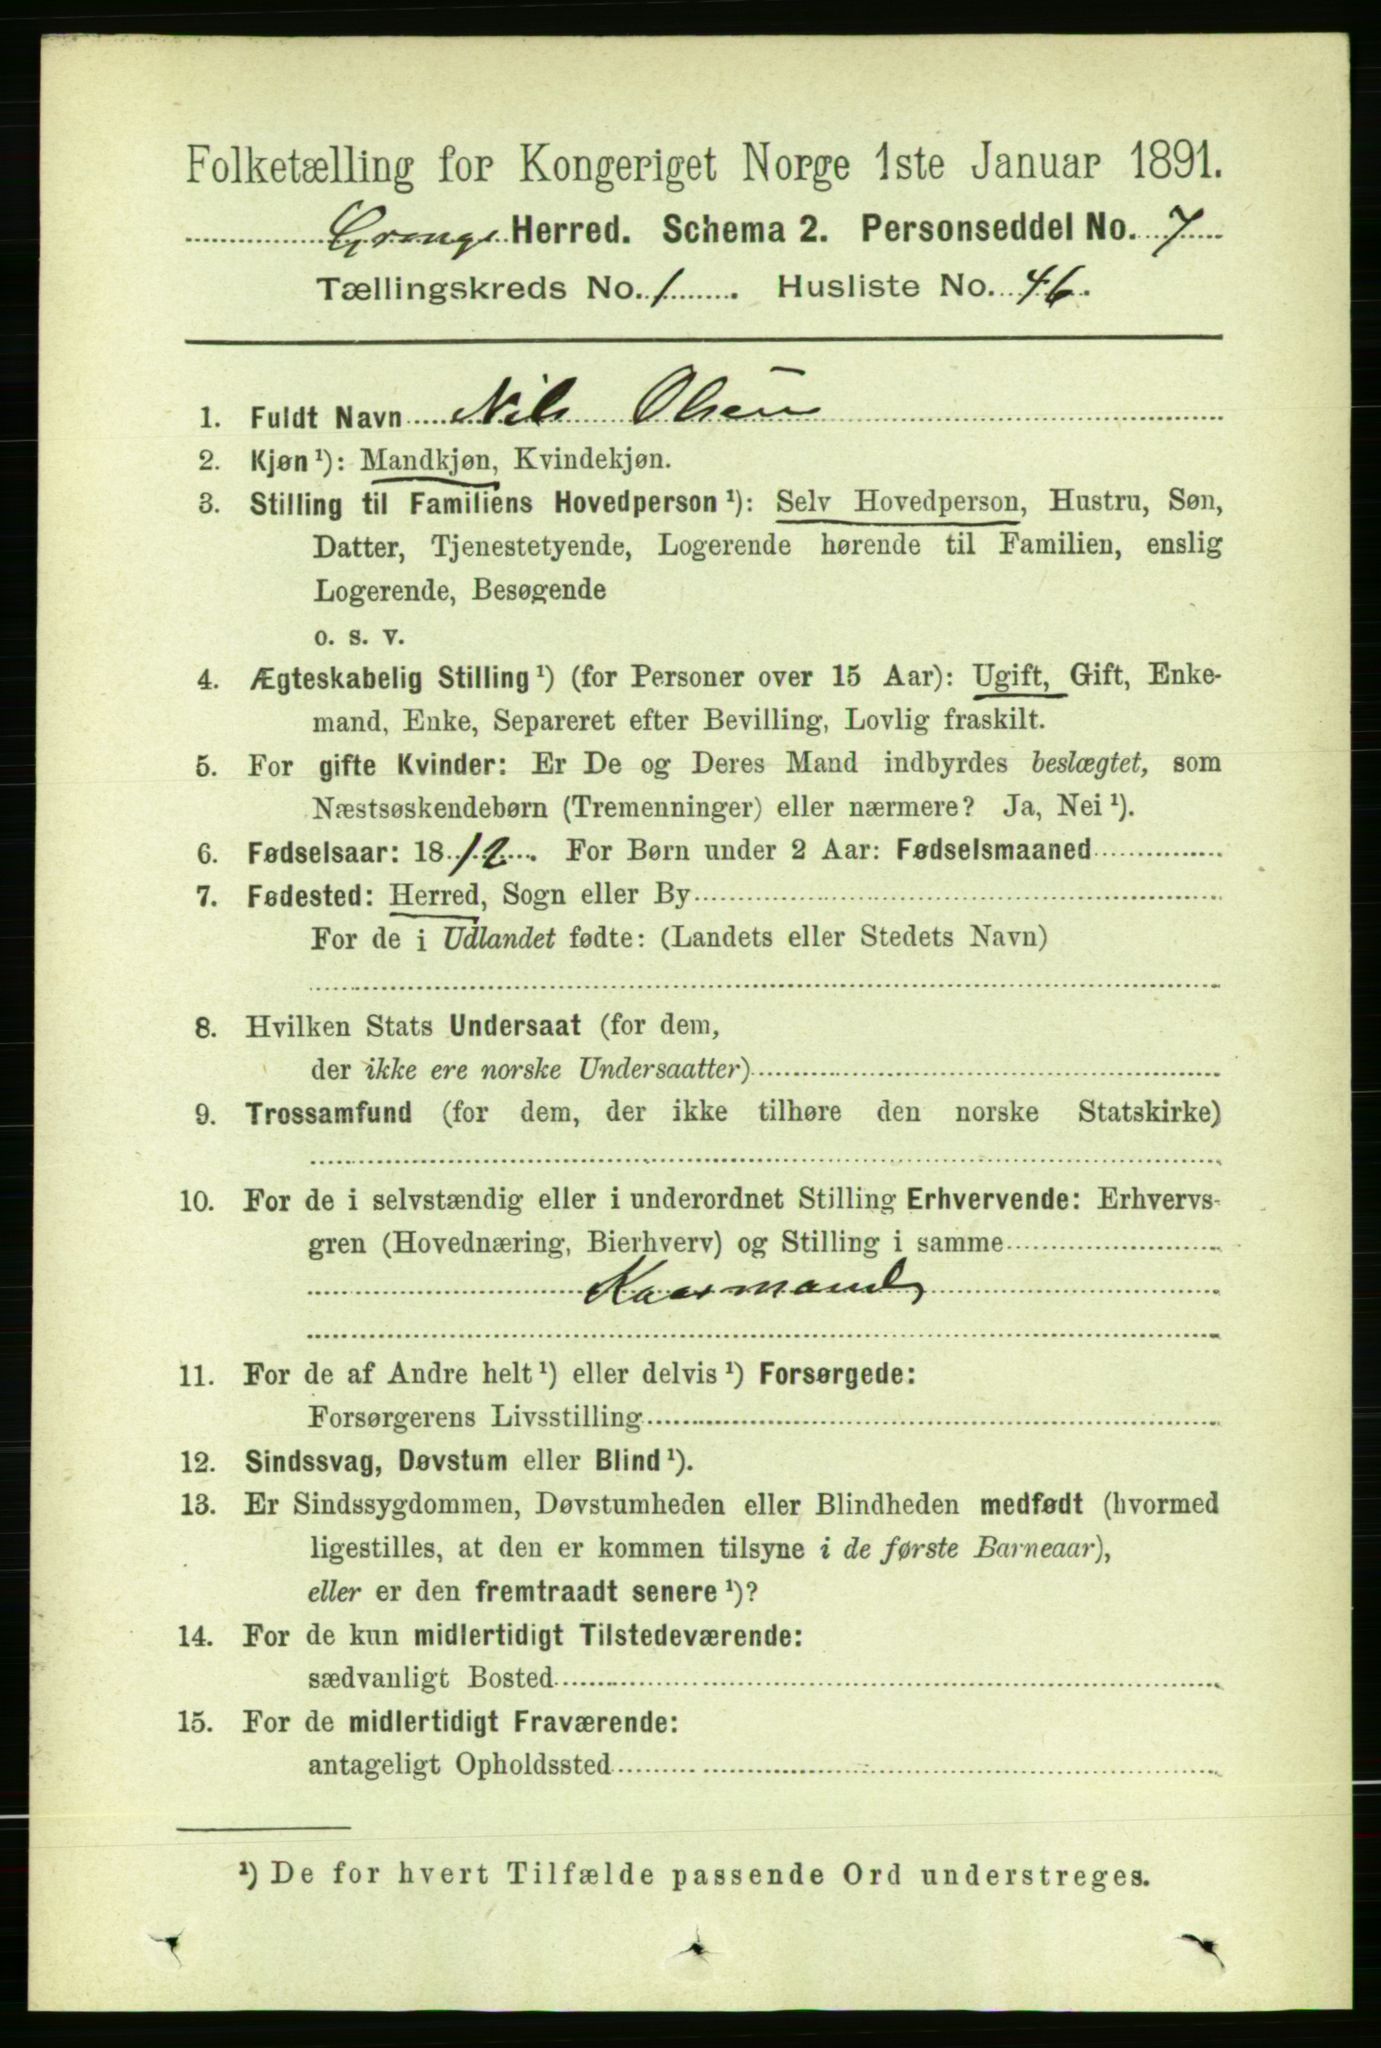 Folketælling for Kongeriget Norge 1ste Januar 1891.
Herred. Schema 2. Personseddel No. 7
Tællingskreds No. 1. Husliste No. 46.
1. Fuldt Navn Nils Olsen
2. Kjøn ¹): Mandkjøn, Kvindekjøn.
3. Stilling til Familiens Hovedperson ¹): Selv Hovedperson, Hustru, Søn,
Datter, Tjenestetyende, Logerende hørende til Familien, enslig
Logerende, Besøgende
o. s. v.
4. Ægteskabelig Stilling ¹) (for Personer over 15 Aar): Ugift, Gift, Enke-
mand, Enke, Separeret efter Bevilling, Lovlig fraskilt.
5. For gifte Kvinder: Er De og Deres Mand indbyrdes beslægtet, som
Næstsøskendebørn (Tremenninger) eller nærmere? Ja, Nei ¹).
6. Fødselsaar: 1812. For Børn under 2 Aar: Fødselsmaaned
7. Fødested: Herred, Sogn eller By
For de i Udlandet fødte: (Landets eller Stedets Navn)
8. Hvilken Stats Undersaat (for dem,
der ikke ere norske Undersaatter)
9. Trossamfund (for dem, der ikke tilhøre den norske Statskirke)
10. For de i selvstændig eller i underordnet Stilling Erhvervende: Erhvervs-
gren (Hovednæring, Bierhverv) og Stilling i samme
Kaarmand
11. For de af Andre helt ¹) eller delvis ¹) Forsørgede:
Forsørgerens Livsstilling
12. Sindssvag, Døvstum eller Blind ¹).
13. Er Sindssygdommen, Døvstumheden eller Blindheden medfødt (hvormed
ligestilles, at den er kommen tilsyne i de første Barneaar),
eller er den fremtraadt senere ¹)?
14. For de kun midlertidigt Tilstedeværende:
sædvanligt Bosted
15. For de midlertidigt Fraværende:
antageligt Opholdssted
¹) De for hvert Tilfælde passende Ord understreges.